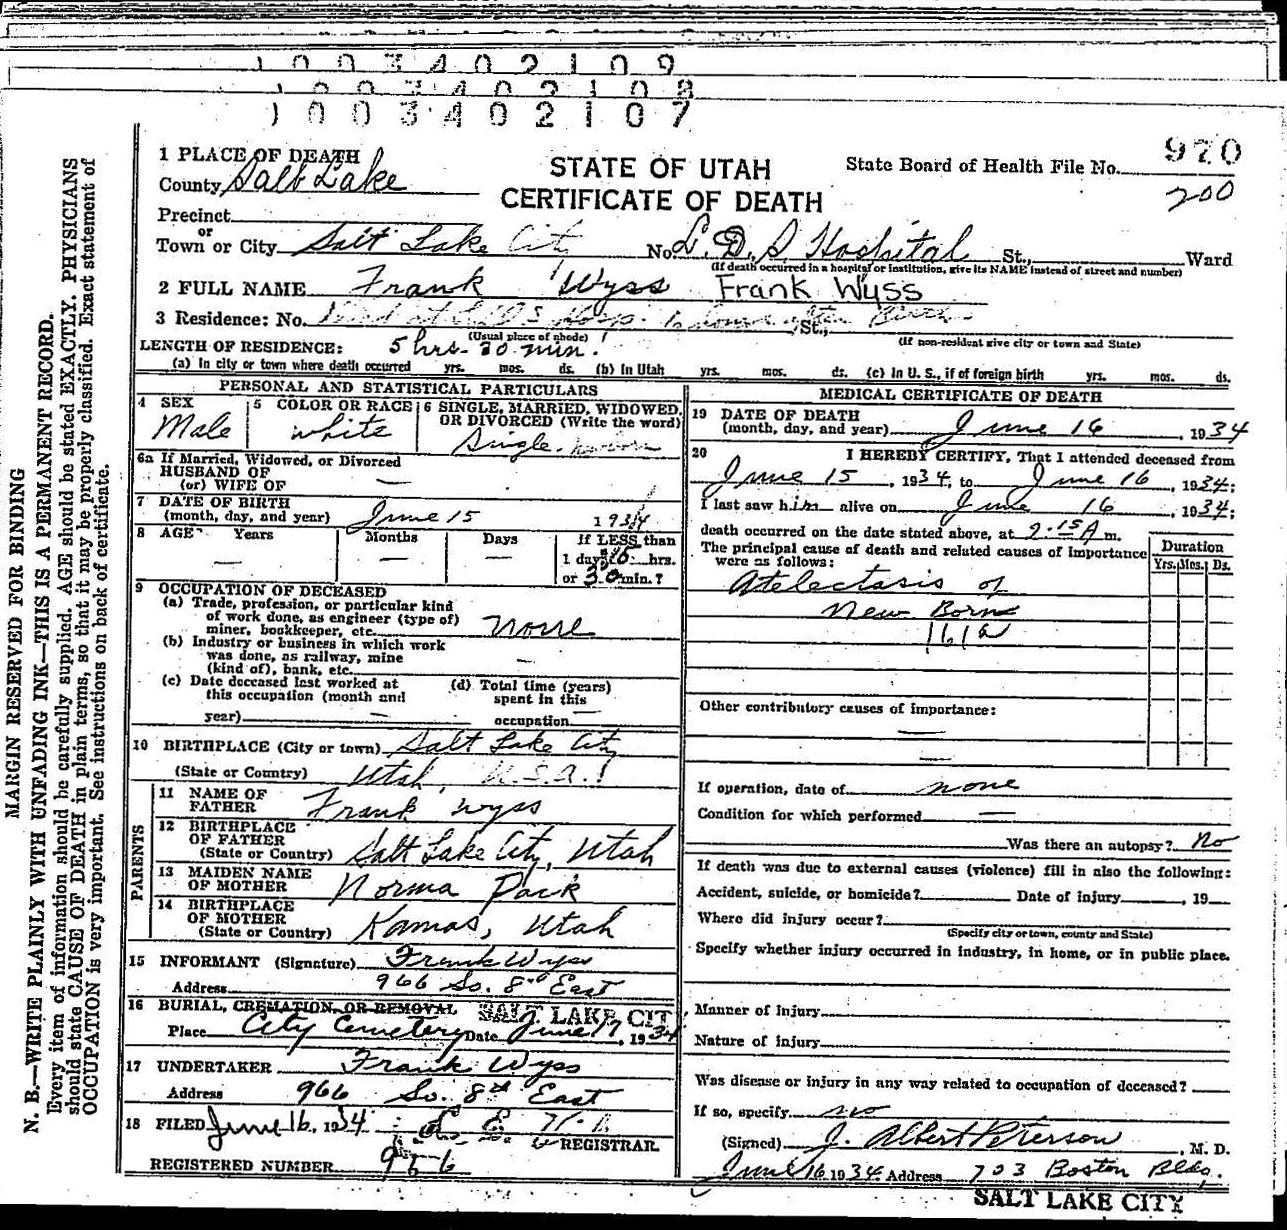 1003402109
1003402108
1003402107
1 PLACE OF DEATH
County Salt Lake
STATE OF UTAH
CERTIFICATE OF DEATH
State Board of Health File No. 970
200
Precinct
or
Town or City Salt Lake City No. L. D. S. Hospital St., Ward
(If death occurred in a hospital or institution, give its NAME instead of street and number)
2 FULL NAME Frank Wyss Frank Wyss
3 Residence: No. at L.D.S. Hosp. hours after Birth St.,
(Usual place of abode) (If non-resident give city or town and State)
LENGTH OF RESIDENCE: 5 hrs. 30 min.
(a) In city or town where death occurred yrs. mos. ds. (b) In Utah yrs. mos. ds. (c) In U. S., if of foreign birth yrs. mos. ds.
PERSONAL AND STATISTICAL PARTICULARS
4 SEX Male
5 COLOR OR RACE white
6 SINGLE, MARRIED, WIDOWED, OR DIVORCED (Write the word) Single
6a If Married, Widowed, or Divorced
HUSBAND OF
(or) WIFE OF —
7 DATE OF BIRTH
(month, day, and year) June 15 1934
8 AGE Years Months Days If LESS than
— — — 1 day, 5 hrs.
or 30 min.?
9 OCCUPATION OF DECEASED
(a) Trade, profession, or particular kind
of work done, as engineer (type of)
miner, bookkeeper, etc. none
(b) Industry or business in which work
was done, as railway, mine
(kind of), bank, etc. —
(c) Date deceased last worked at
this occupation (month and
year) —
(d) Total time (years)
spent in this
occupation —
10 BIRTHPLACE (City or town) Salt Lake City
(State or Country) Utah, U.S.A.
PARENTS
11 NAME OF
FATHER Frank Wyss
12 BIRTHPLACE
OF FATHER
(State or Country) Salt Lake City, Utah
13 MAIDEN NAME
OF MOTHER Norma Pack
14 BIRTHPLACE
OF MOTHER
(State or Country) Kamas, Utah
15 INFORMANT (Signature) Frank Wyss
Address 966 So. 8th East
16 BURIAL, CREMATION, OR REMOVAL SALT LAKE CITY
Place City Cemetery Date June 17, 1934
17 UNDERTAKER Frank Wyss
Address 966 So. 8th East
18 FILED June 16, 1934
REGISTRAR
REGISTERED NUMBER 956
MEDICAL CERTIFICATE OF DEATH
19 DATE OF DEATH
(month, day, and year) June 16, 1934
20 I HEREBY CERTIFY, That I attended deceased from
June 15, 1934, to June 16, 1934;
I last saw him alive on June 16, 1934;
death occurred on the date stated above, at 2:15 A m.
The principal cause of death and related causes of importance
were as follows:
Duration
Yrs. Mos. Ds.
Atelectasis of
New Born
161a
Other contributory causes of importance:
—
—
If operation, date of none
Condition for which performed —
Was there an autopsy? No
If death was due to external causes (violence) fill in also the following:
Accident, suicide, or homicide? Date of injury , 19
Where did injury occur?
(Specify city or town, county and State)
Specify whether injury occurred in industry, in home, or in public place.
Manner of injury
Nature of injury
Was disease or injury in any way related to occupation of deceased?
If so, specify no
(Signed) J. Albert Peterson, M. D.
June 16 1934 Address 703 Boston Bldg.
SALT LAKE CITY
MARGIN RESERVED FOR BINDING
N. B.—WRITE PLAINLY WITH UNFADING INK—THIS IS A PERMANENT RECORD.
Every item of information should be carefully supplied. AGE should be stated EXACTLY. PHYSICIANS
should state CAUSE OF DEATH in plain terms, so that it may be properly classified. Exact statement of
OCCUPATION is very important. See instructions on back of certificate.